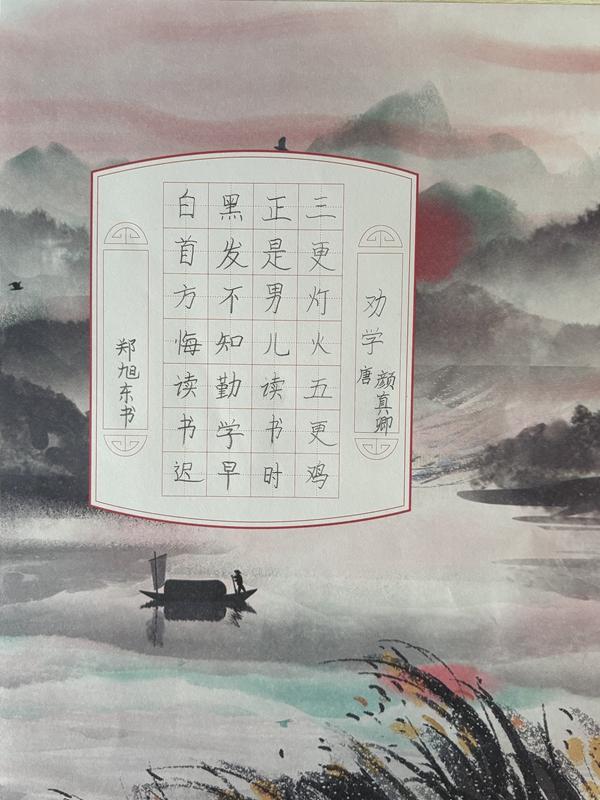 劝学
唐 颜真卿
三更灯火五更鸡
正是男儿读书时
黑发不知勤学早
白首方悔读书迟
郑旭东书